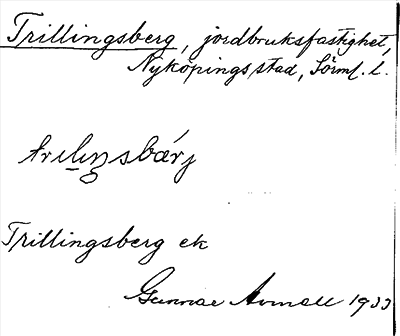 Trillingsberg, jordbruksfastighet,
Nyköpings stad, Sörml. l.
triliŋsbærj
Trillingsberg ek
Gunnar 1933